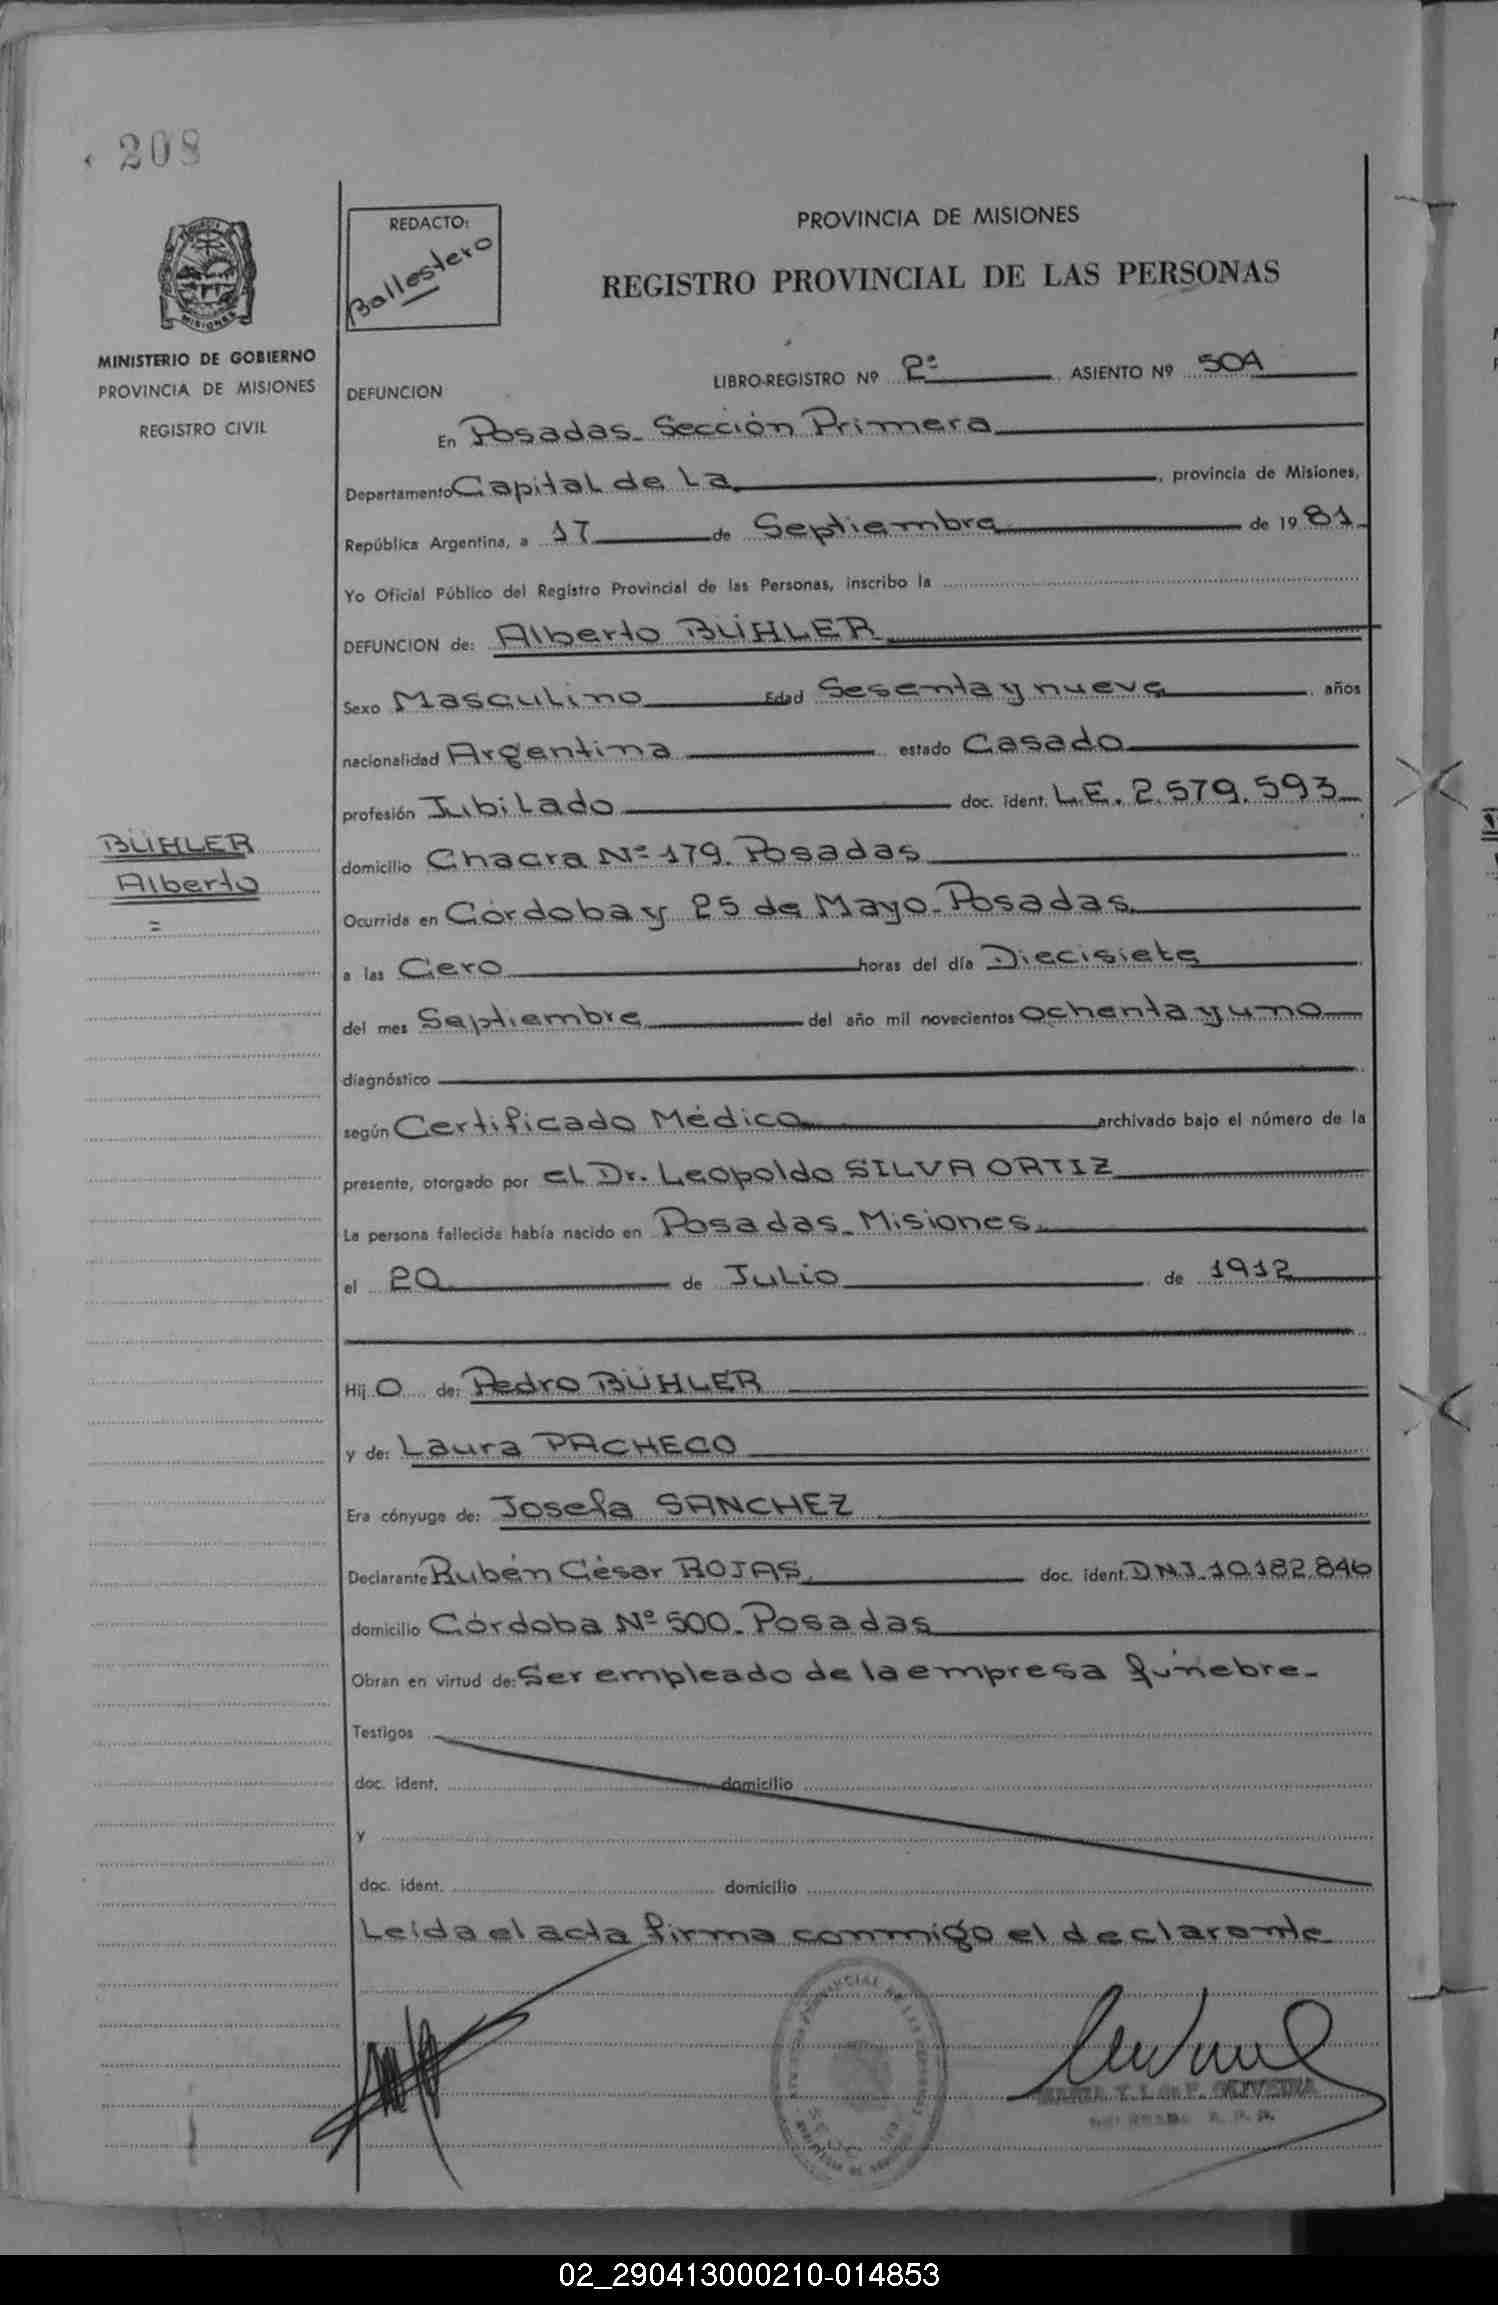 208
REDACTO:
Ballestero
PROVINCIA DE MISIONES
REGISTRO PROVINCIAL DE LAS PERSONAS
MISIONES
MINISTERIO DE GOBIERNO
PROVINCIA DE MISIONES
REGISTRO CIVIL
DEFUNCION
LIBRO-REGISTRO Nº 2º ASIENTO Nº 504
En Posadas - Sección Primera
Departamento Capital de La , provincia de Misiones,
República Argentina, a 17 de Septiembre de 1981
Yo Oficial Público del Registro Provincial de las Personas, inscribo la
DEFUNCION de: Alberto BÜHLER
Sexo Masculino Edad Sesenta y nueve años
nacionalidad Argentina estado Casado
profesión Jubilado doc. ident. L.E. 2.579.593
BÜHLER
Alberto
domicilio Chacra Nº 179. Posadas
Ocurrida en Córdoba y 25 de Mayo - Posadas
a las Cero horas del día Diecisiete
del mes Septiembre del año mil novecientos ochenta y uno
diagnóstico
según Certificado Médico archivado bajo el número de la
presente, otorgado por el Dr. Leopoldo SILVA ORTIZ
La persona fallecida había nacido en Posadas - Misiones
el 20 de Julio de 1912
Hij o de: Pedro BÜHLER
y de: Laura PACHECO
Era cónyuge de: Josefa SANCHEZ
Declarante Rubén César ROJAS doc. ident. DNI. 10.182.846
domicilio Córdoba Nº 500 - Posadas
Obran en virtud de: Ser empleado de la empresa fúnebre -
Testigos
doc. ident. domicilio
y
doc. ident. domicilio
Leída el acta firma conmigo el declarante
OLIVEIRA
02_290413000210-014853